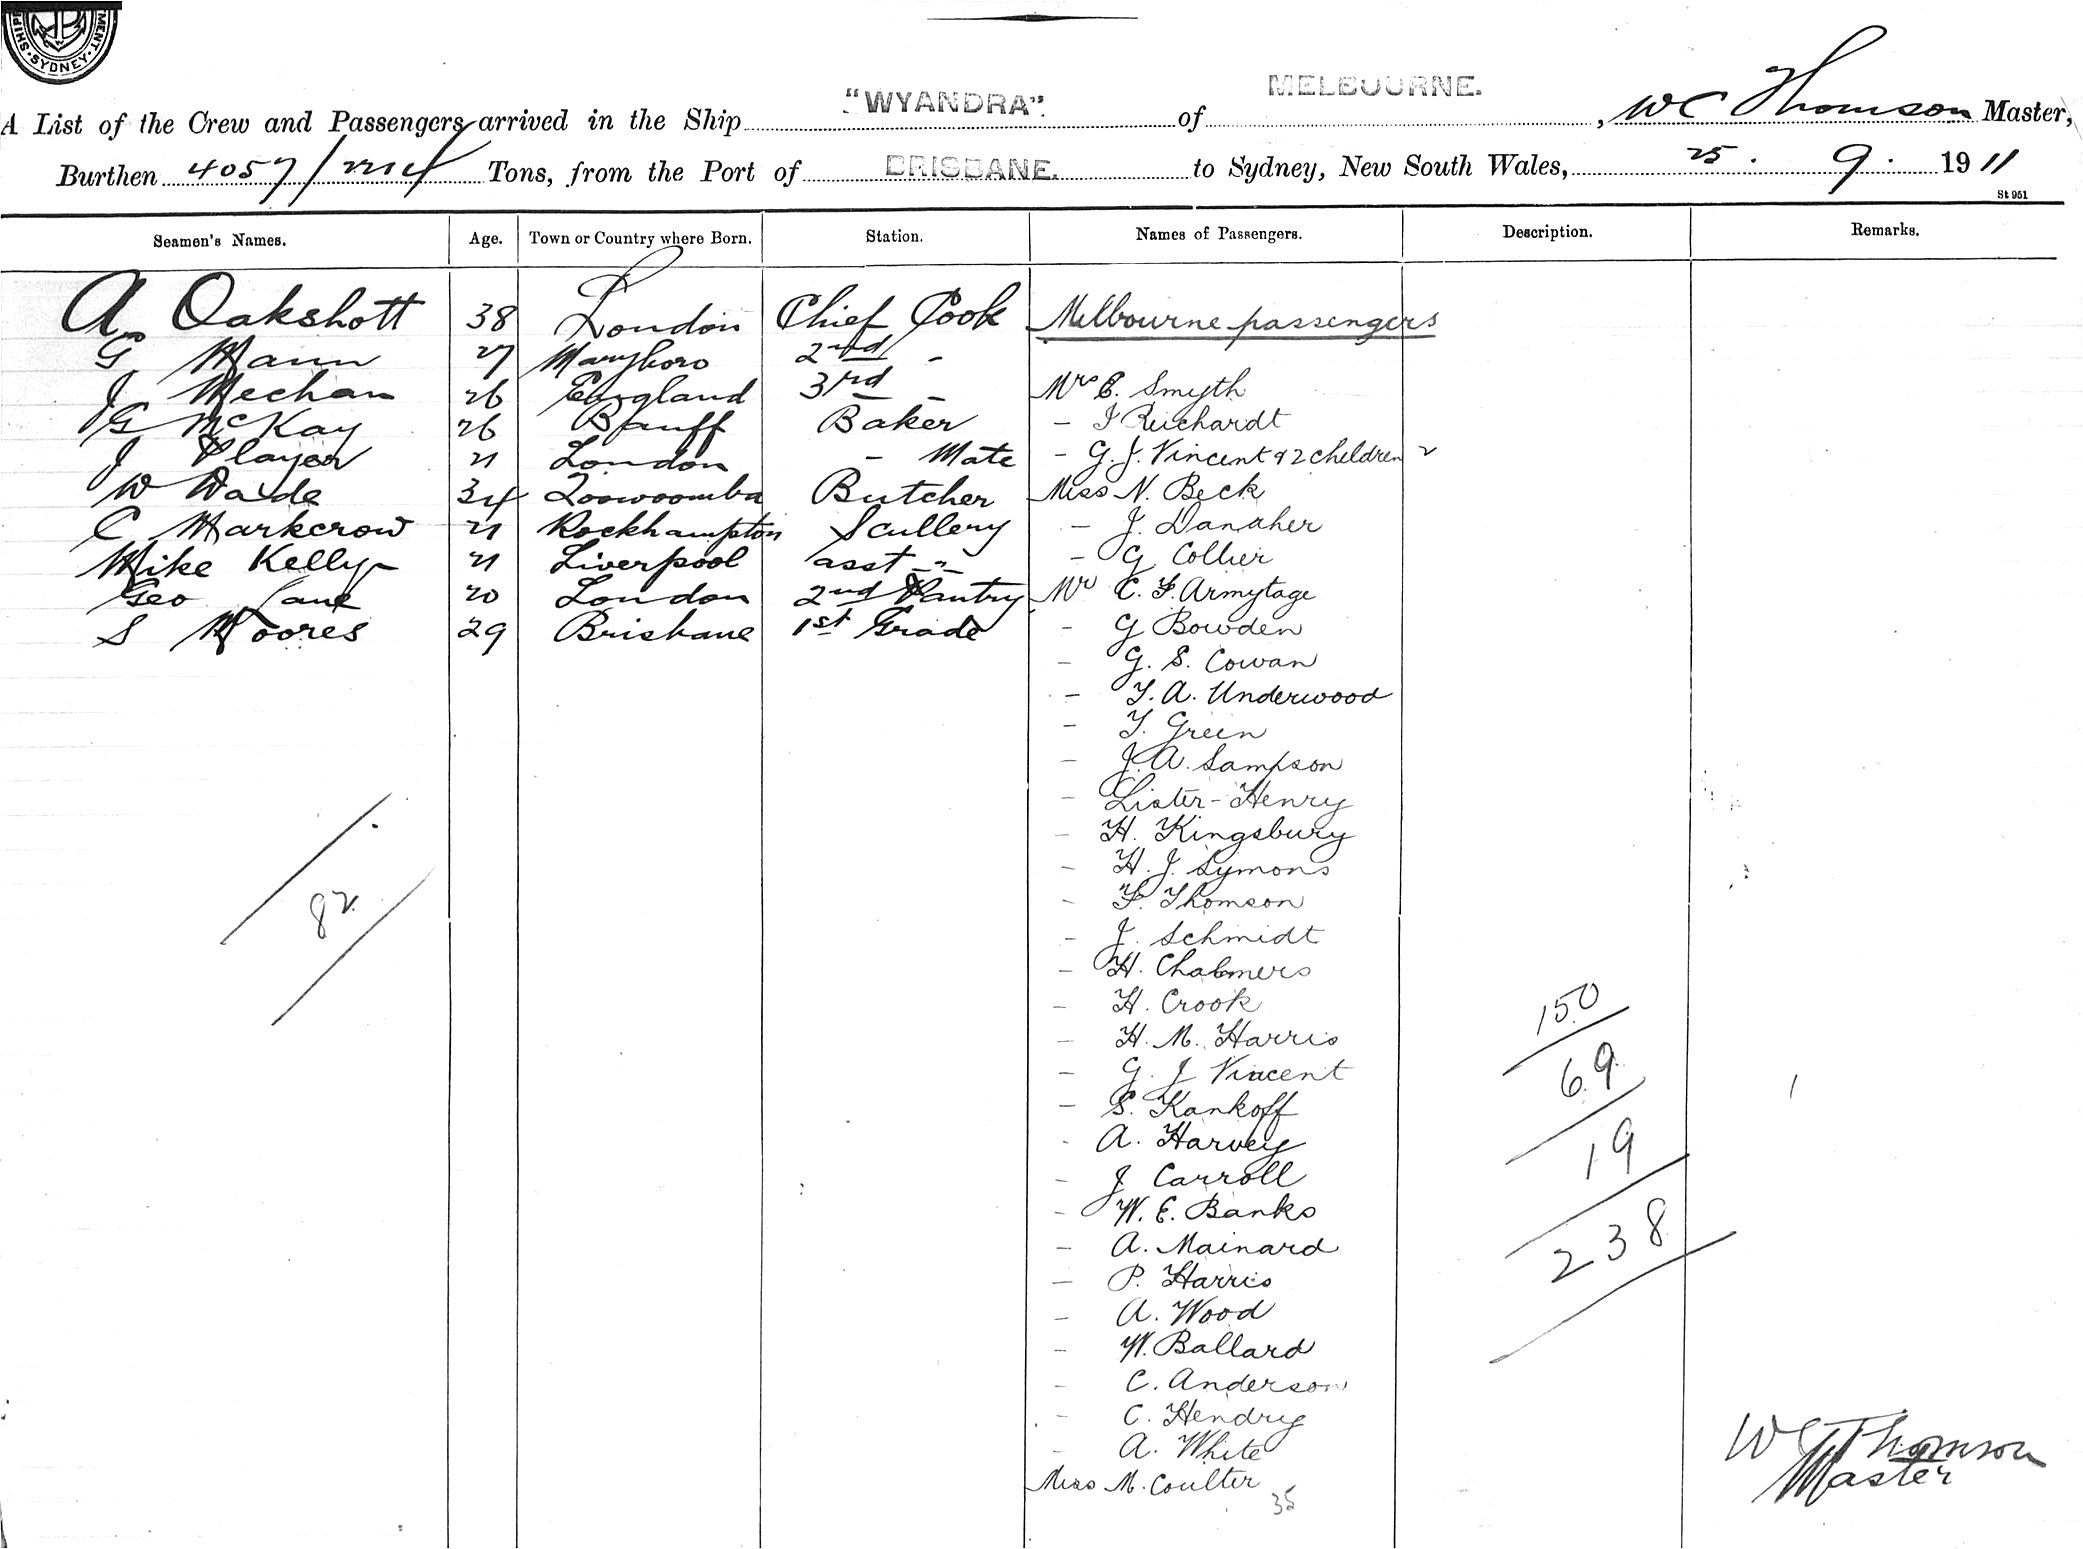 SYDNEY
"WYANDRA". MELBOURNE.
A List of the Crew and Passengers arrived in the Ship of , WC Thomson Master,
Burthen 4057/ Tons, from the Port of BRISBANE. to Sydney, New South Wales, 25. 9. 1911
St 951
Seamen's Names. Age. Town or Country where Born. Station. Names of Passengers. Description. Remarks.
A Oakshott 38 London Chief Cook Melbourne passengers
G Mann 27 Maryboro 2nd -
J Mechan 26 England 3rd - Mrs E. Smyth
G McKay 26 Banff Baker - I Reichardt
J Player 21 London - Mate - G. J. Vincent & 2 children 2
W Wade 34 Toowoomba Butcher Miss N. Beck
C Harkcrow 21 Rockhampton Scullery - J. Danaher
Mike Kelly 21 Liverpool asst -"- - G Collier
Geo Lane 20 London 2nd Pantry Mr C. F. Armytage
S Moores 29 Brisbane 1st Grade - G Bowden
- G. S. Cowan
- T. A. Underwood
- T. Green
- J. A. Sampson
- Lister-Henry
- H. Kingsbury
- H. J. Symons
82
- F. Thomson
- J. Schmidt
- H. Chalmers
- H. Crook
150
- H. M. Harris
- G. J Vincent
69
- S. Kankoff
- A. Harvey
19
- J Carroll
- W. E. Banks
- A. Mainard
238
- P. Harris
- A. Wood
- W. Ballard
- C. Anderson
- C. Hendry
- A. White
W C Thomson
Master
Miss M. Coulter
35